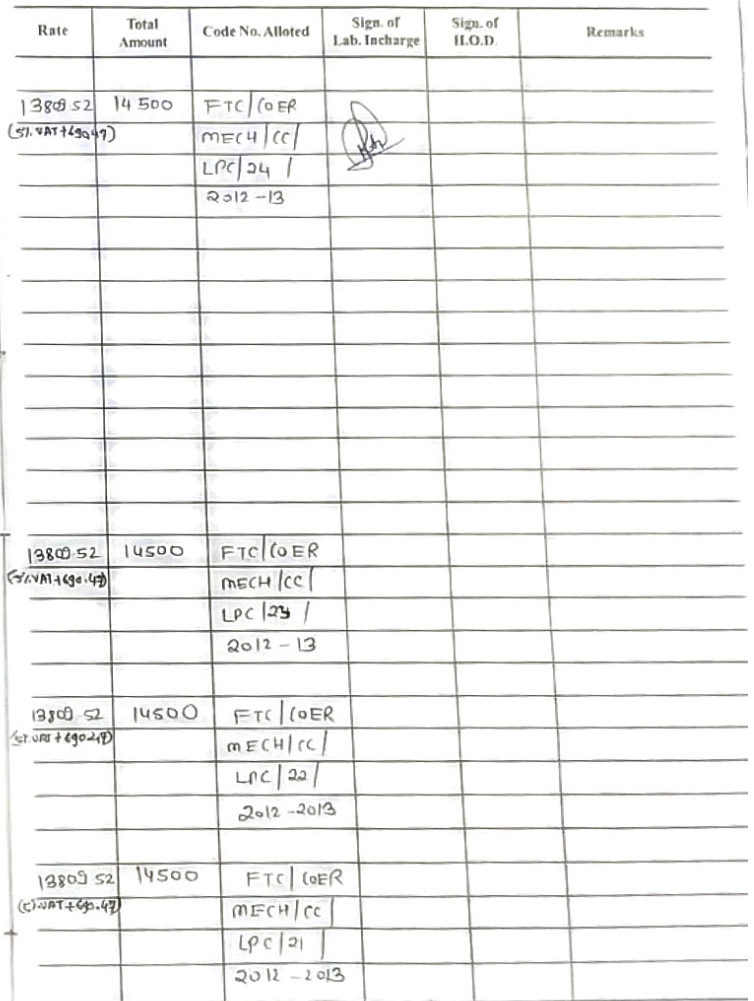 Rate Total Amount Code No. Alloted Sign. of Lab. Incharge Sign. of H.O.D. Remarks
13809 52 14 500 FTC/COER
(5%. VAT+690.47) MECH/CC/
LPC/24 /
2012-13
13809.52 14500 FTC/COER
(5%.VAT+690.47) MECH/CC/
LPC/23 /
2012-13
13809 52 14500 FTC/COER
(5%.VAT+690.47) MECH/CC/
LPC/22/
2012-2013
13809 52 14500 FTC/COER
(5%.VAT+690.47) MECH/CC/
LPC/21 /
2012-2013